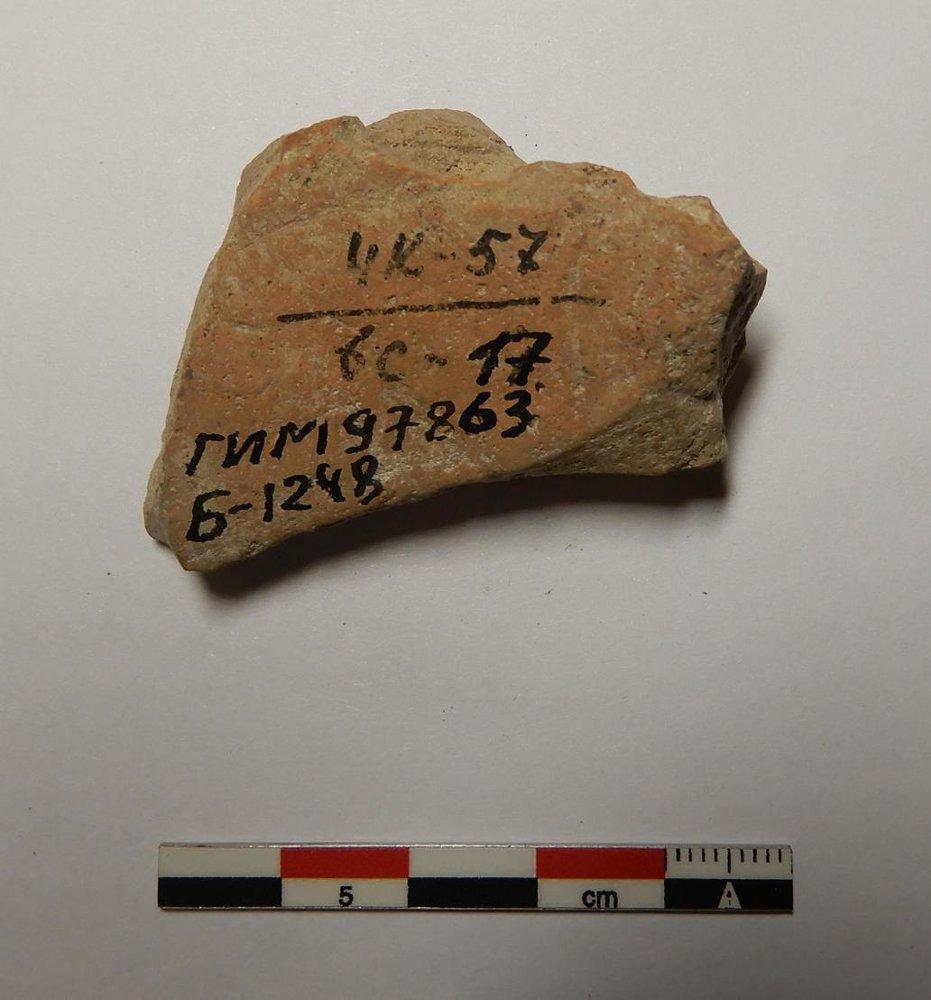 ЧК-57
ВС-17
ГИМ 97863
Б-1248
5 cm